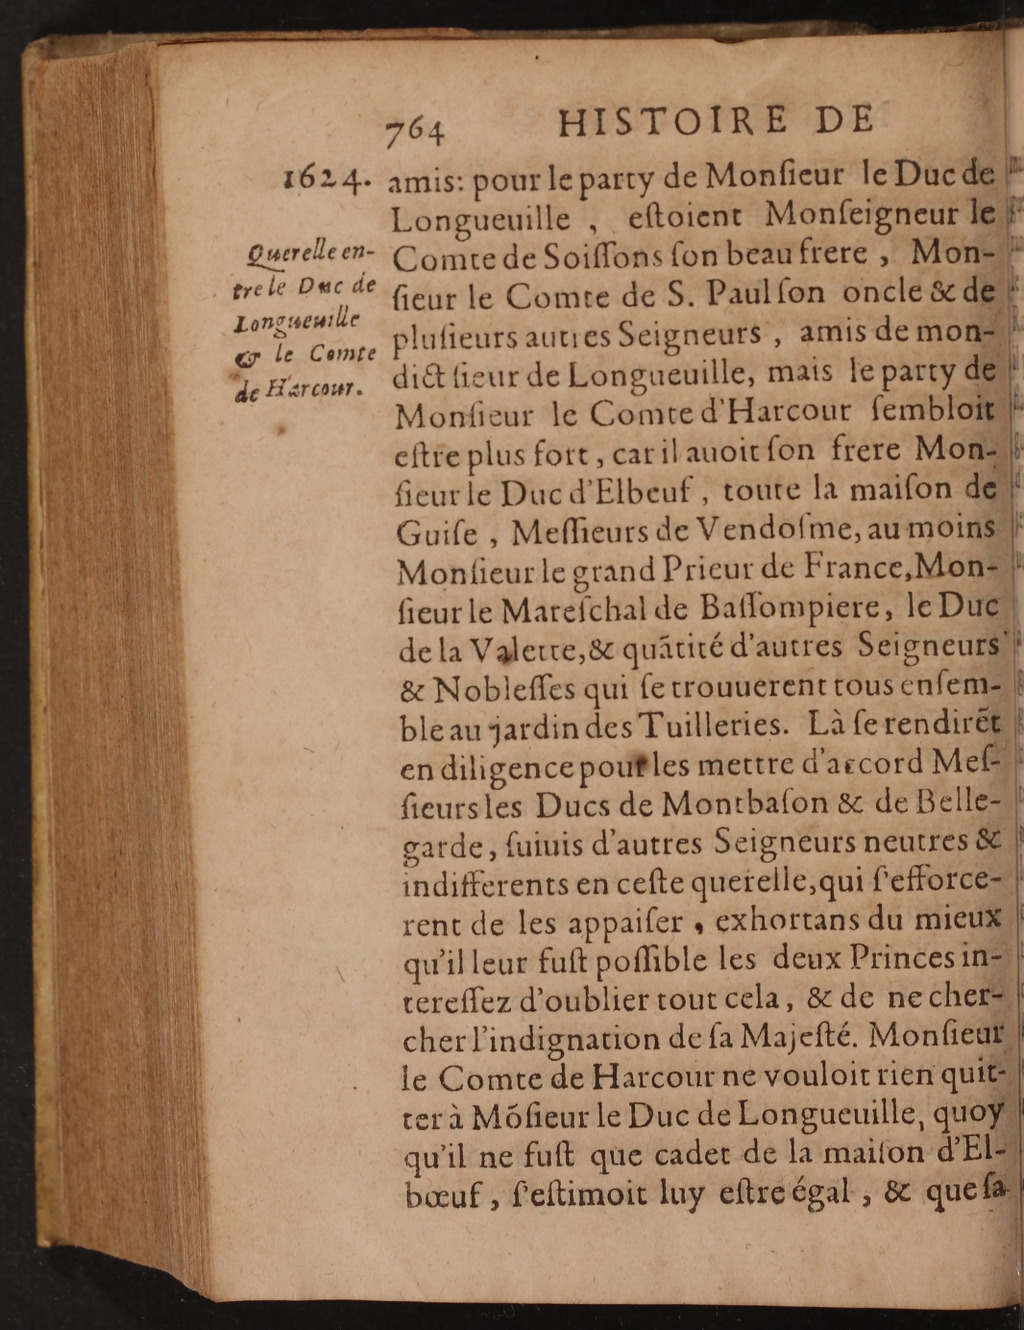 764 HISTOIRE DE
1624.
Querelle en-
tre le Duc de
Longueuille
& le Comte
de Harcour.
amis: pour le party de Monſieur le Duc de
Longueuille , eſtoient Monſeigneur le
Comte de Soiſſons ſon beau frere , Mon-
ſieur le Comte de S. Paul ſon oncle & de
pluſieurs autres Seigneurs , amis de mon-
dict ſieur de Longueuille, mais le party de
Monſieur le Comte d'Harcour ſembloit
eſtre plus fort , car il auoit ſon frere Mon-
ſieur le Duc d'Elbeuf , toute la maiſon de
Guiſe , Meſſieurs de Vendoſme, au moins
Monſieur le grand Prieur de France, Mon-
ſieur le Mareſchal de Baſſompiere, le Duc
de la Valette, & quãtité d'autres Seigneurs
& Nobleſſes qui ſe trouuerent tous enſem-
ble au jardin des Tuilleries. Là ſe rendirẽt
en diligence pour les mettre d'accord Meſ-
ſieurs les Ducs de Montbaſon & de Belle-
garde , ſuiuis d'autres Seigneurs neutres &
indifferents en ceſte querelle, qui ſ'efforce-
rent de les appaiſer , exhortans du mieux
qu'il leur fuſt poſſible les deux Princes in-
tereſſez d'oublier tout cela , & de ne cher-
cher l'indignation de ſa Majeſté. Monſieur
le Comte de Harcour ne vouloit rien quit-
ter à Mõſieur le Duc de Longueuille, quoy
qu'il ne fuſt que cadet de la maiſon d'El-
bœuf , ſ'eſtimoit luy eſtre égal , & que ſa